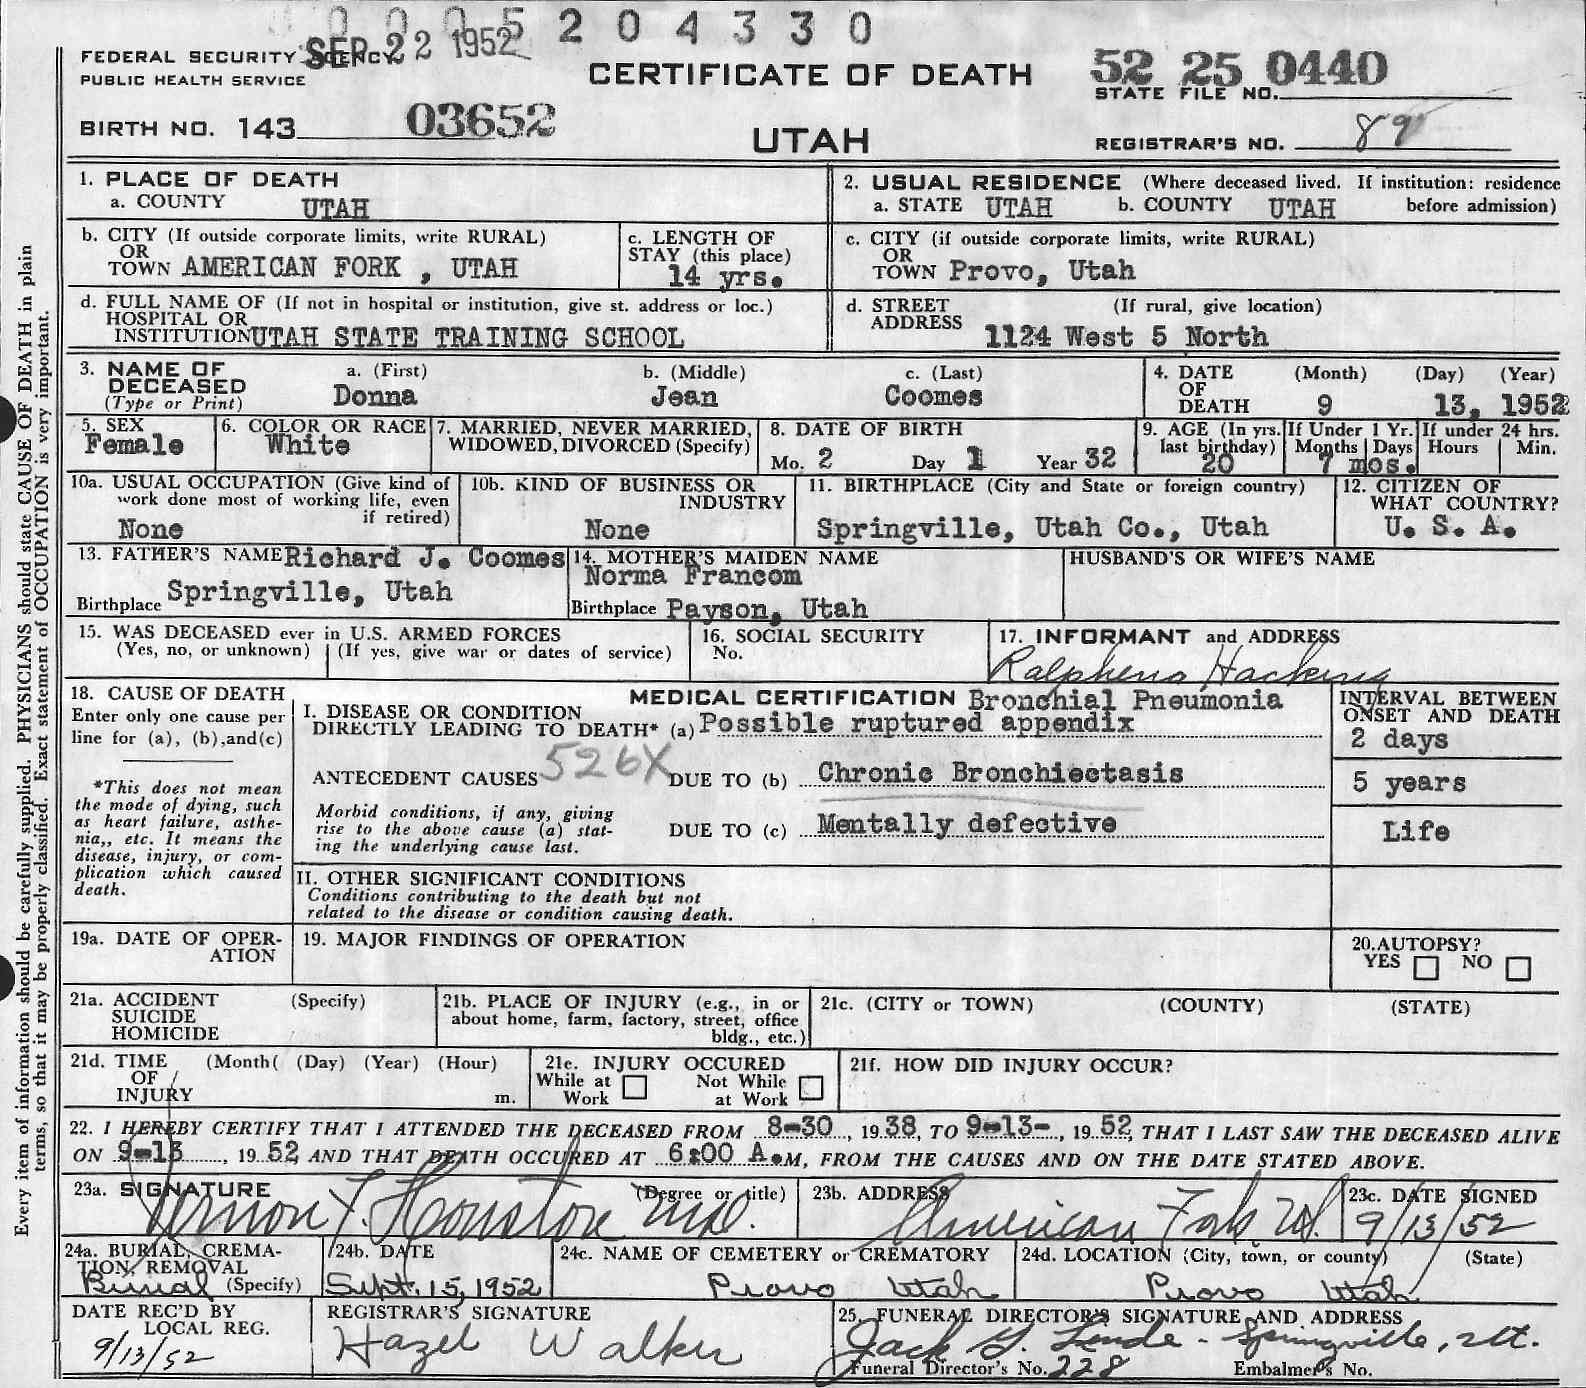 0 0 0 5 2 0 4 3 3 0
FEDERAL SECURITY AGENCY SEP 22 1952
PUBLIC HEALTH SERVICE
CERTIFICATE OF DEATH
52 25 0440
STATE FILE NO.
BIRTH NO. 143 03652
UTAH
REGISTRAR'S NO. 89
1. PLACE OF DEATH
a. COUNTY UTAH
2. USUAL RESIDENCE (Where deceased lived. If institution: residence
a. STATE UTAH b. COUNTY UTAH before admission)
b. CITY (If outside corporate limits, write RURAL)
OR
TOWN AMERICAN FORK , UTAH
c. LENGTH OF
STAY (this place)
14 yrs.
c. CITY (if outside corporate limits, write RURAL)
OR
TOWN Provo, Utah
d. FULL NAME OF (If not in hospital or institution, give st. address or loc.)
HOSPITAL OR
INSTITUTION UTAH STATE TRAINING SCHOOL
d. STREET (If rural, give location)
ADDRESS
1124 West 5 North
3. NAME OF
DECEASED
(Type or Print)
a. (First) b. (Middle) c. (Last)
Donna Jean Coomes
4. DATE (Month) (Day) (Year)
OF
DEATH 9 13, 1952
5. SEX
Female
6. COLOR OR RACE
White
7. MARRIED, NEVER MARRIED,
WIDOWED, DIVORCED (Specify)
8. DATE OF BIRTH
Mo. 2 Day 1 Year 32
9. AGE (In yrs.
last birthday)
20
If Under 1 Yr.
Months Days
7 mos.
If under 24 hrs.
Hours Min.
10a. USUAL OCCUPATION (Give kind of
work done most of working life, even
if retired)
None
10b. KIND OF BUSINESS OR
INDUSTRY
None
11. BIRTHPLACE (City and State or foreign country)
Springville, Utah Co., Utah
12. CITIZEN OF
WHAT COUNTRY?
U. S. A.
13. FATHER'S NAME Richard J. Coomes
Birthplace Springville, Utah
14. MOTHER'S MAIDEN NAME
Norma Francom
Birthplace Payson, Utah
HUSBAND'S OR WIFE'S NAME
15. WAS DECEASED ever in U.S. ARMED FORCES
(Yes, no, or unknown) (If yes, give war or dates of service)
16. SOCIAL SECURITY
No.
17. INFORMANT and ADDRESS
Ralpheno Hacking
18. CAUSE OF DEATH
Enter only one cause per
line for (a), (b),and(c)
*This does not mean
the mode of dying, such
as heart failure, asthe-
nia,, etc. It means the
disease, injury, or com-
plication which caused
death.
MEDICAL CERTIFICATION Bronchial Pneumonia
I. DISEASE OR CONDITION
DIRECTLY LEADING TO DEATH* (a) Possible ruptured appendix
526X
ANTECEDENT CAUSES DUE TO (b) Chronic Bronchiectasis
Morbid conditions, if any, giving
rise to the above cause (a) stat-
ing the underlying cause last.
DUE TO (c) Mentally defective
INTERVAL BETWEEN
ONSET AND DEATH
2 days
5 years
Life
II. OTHER SIGNIFICANT CONDITIONS
Conditions contributing to the death but not
related to the disease or condition causing death.
19a. DATE OF OPER-
ATION
19. MAJOR FINDINGS OF OPERATION
20.AUTOPSY?
YES NO
21a. ACCIDENT (Specify)
SUICIDE
HOMICIDE
21b. PLACE OF INJURY (e.g., in or
about home, farm, factory, street, office
bldg., etc.)
21c. (CITY or TOWN) (COUNTY) (STATE)
21d. TIME (Month( (Day) (Year) (Hour)
OF
INJURY m.
21e. INJURY OCCURED
While at Work Not While at Work
21f. HOW DID INJURY OCCUR?
22. I HEREBY CERTIFY THAT I ATTENDED THE DECEASED FROM 8-30 , 19 38, TO 9-13- , 19 52, THAT I LAST SAW THE DECEASED ALIVE
ON 9-13 , 19 52, AND THAT DEATH OCCURED AT 6:00 A.M, FROM THE CAUSES AND ON THE DATE STATED ABOVE.
23a. SIGNATURE (Degree or title)
Vernon F. Houston M.D.
23b. ADDRESS
American Fork Ut.
23c. DATE SIGNED
9/13/52
24a. BURIAL, CREMA-
TION, REMOVAL
Burial (Specify)
24b. DATE
Sept. 15, 1952
24c. NAME OF CEMETERY or CREMATORY
Provo Utah
24d. LOCATION (City, town, or county) (State)
Provo Utah
DATE REC'D BY
LOCAL REG.
9/13/52
REGISTRAR'S SIGNATURE
Hazel Walker
25. FUNERAL DIRECTOR'S SIGNATURE AND ADDRESS
Jack Y. Linde - Springville, Ut.
Funeral Director's No. 228 Embalmer's No.
Every item of information should be carefully supplied. PHYSICIANS should state CAUSE OF DEATH in plain
terms, so that it may be properly classified. Exact statement of OCCUPATION is very important.